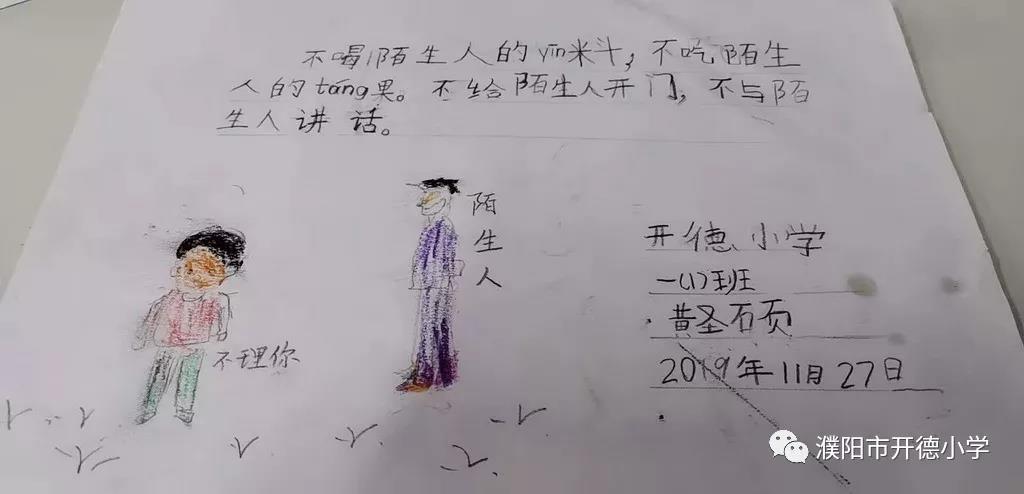 不喝陌生人的yǐn米斗，不吃陌生
人的táng果。不给陌生人开门，不与陌
生人讲话。
陌
生
人
不理你
开德小学
一(1)班
黄圣硕
2019年11月27日
濮阳市开德小学